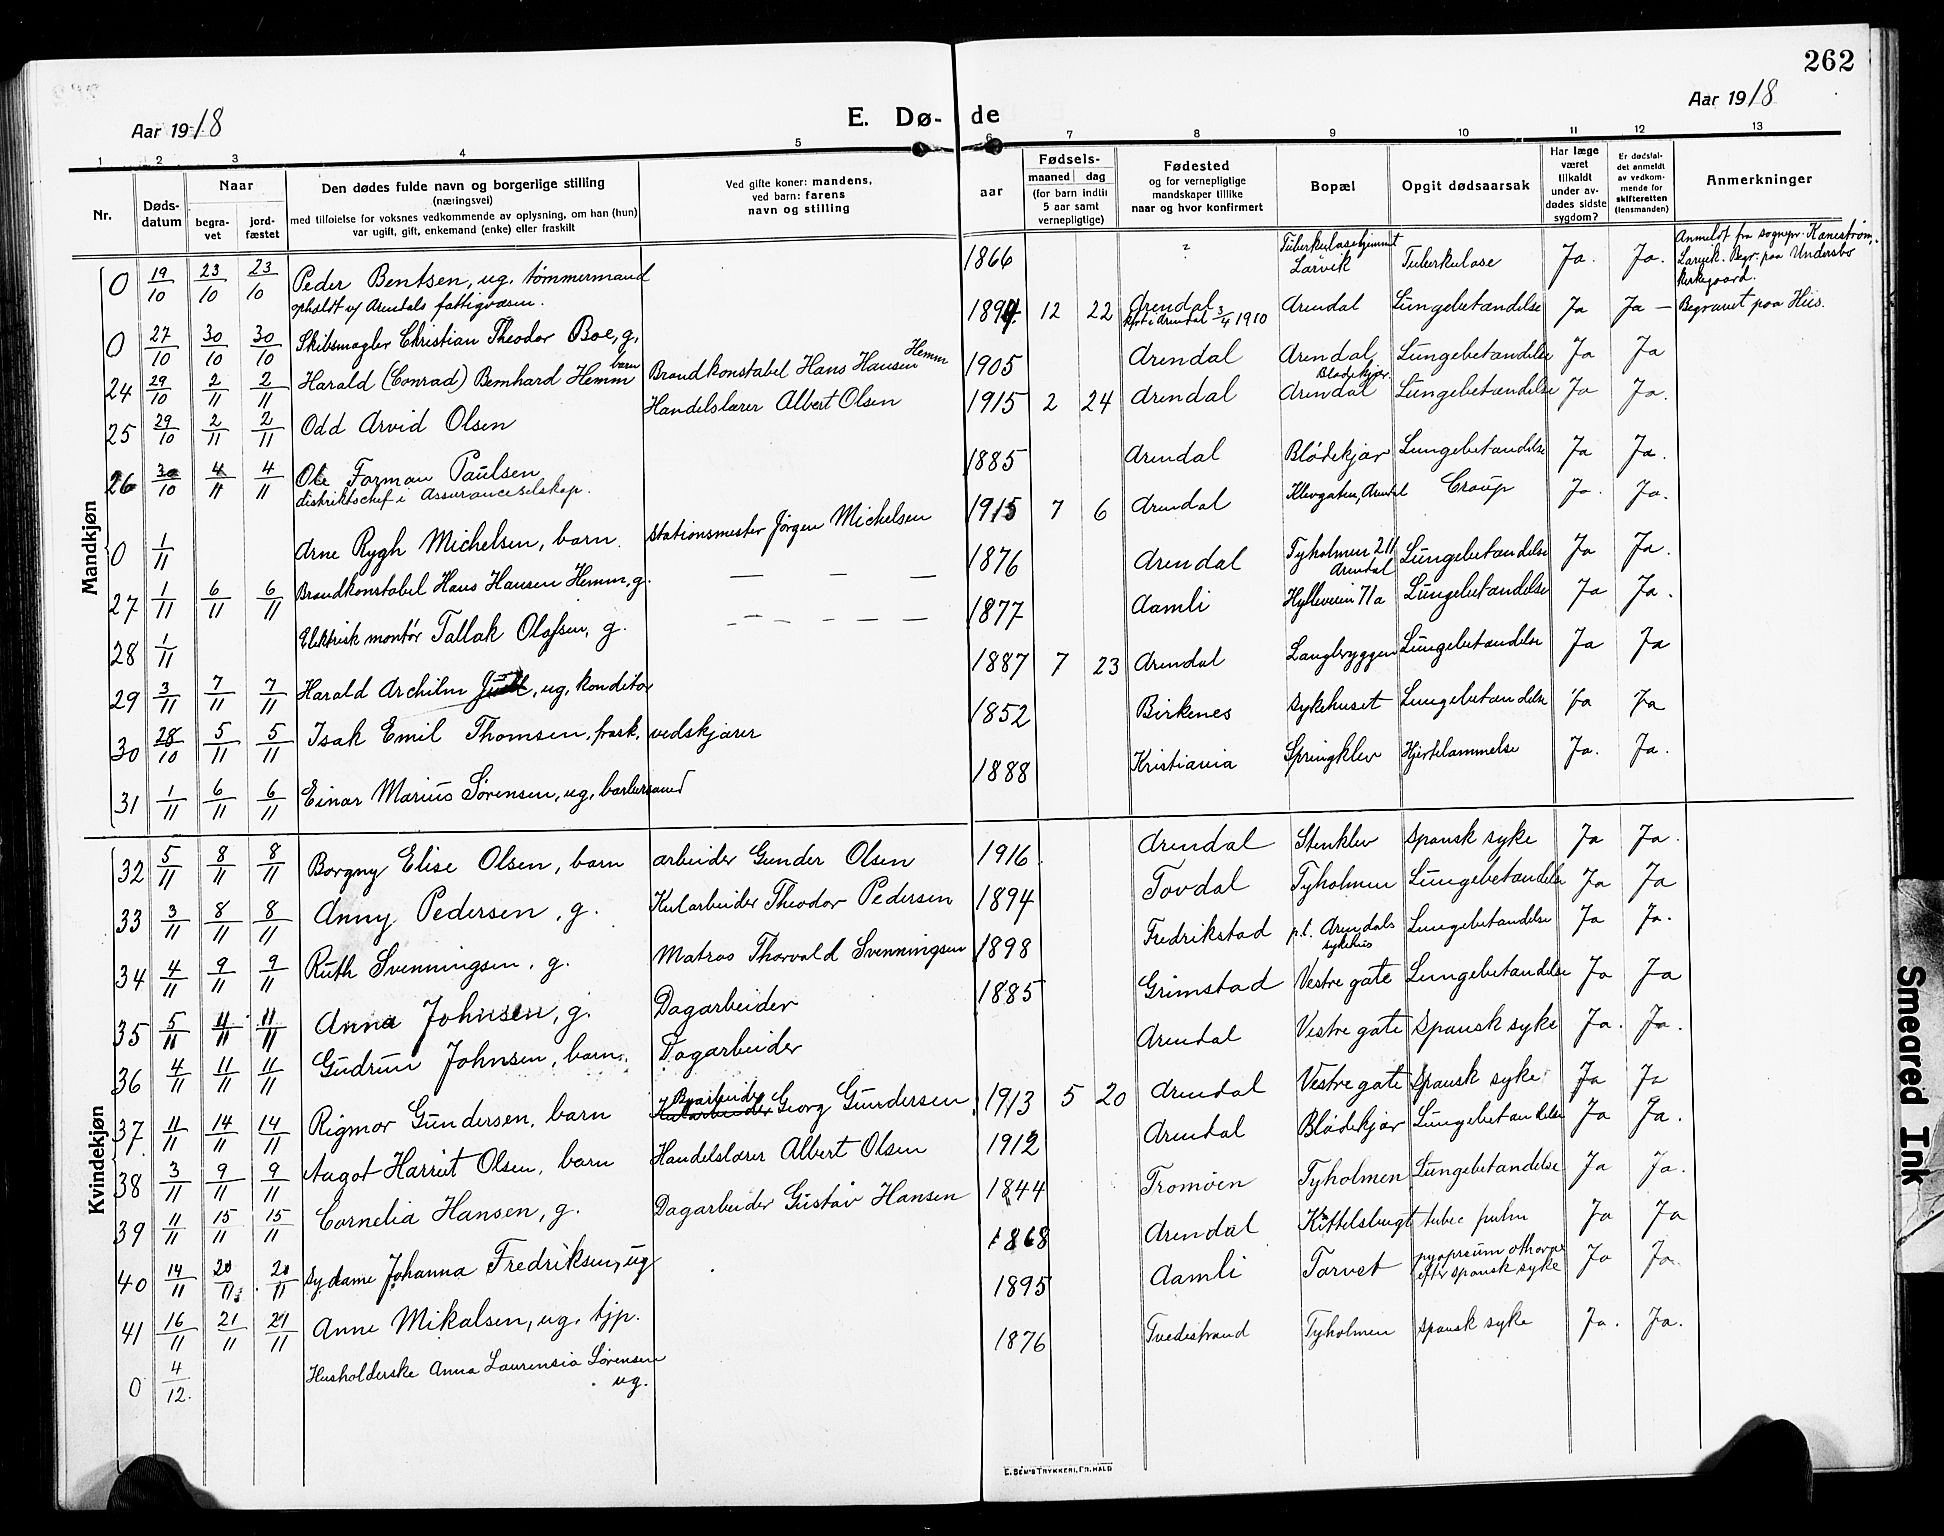 262
Aar 1918
E. Dø-
de
Aar 1918
1 2 3 4 5 6 7 8 9 10 11 12 13
Nr.
Døds-
datum
Naar
begra-
vet
jord-
fæstet
Den dødes fulde navn og borgerlige stilling
(næringsvei)
med tilføielse for voksnes vedkommende av oplysning, om han (hun)
var ugift, gift, enkemand (enke) eller fraskilt
Ved gifte koner: mandens,
ved barn: farens
navn og stilling
aar
Fødsels-
maaned dag
(for barn indtil
5 aar samt
vernepligtige)
Fødested
og for vernepligtige
mandskaper tillike
naar og hvor konfirmert
Bopæl
Opgit dødsaarsak
Har læge
været
tilkaldt
under av-
dødes sidste
sygdom?
Er dødsfal-
det anmeldt
av vedkom-
mende for
skifteretten
(lensmanden)
Anmerkninger
Mandkjøn
0 19/10 23/10 23/10 Peder Bentsen, ug. tømmermand
opholdt v/ Arendals fattigvæsen.
1866 ? Tuberkulosehjemmet
Larvik Tuberkulose Ja. Ja.
Anmeldt fra sognepr. Kanestrøm,
Larvik. Begr. paa Undersbo
kirkegaard.
0 27/10 30/10 30/10 Skibsmægler Christian Theodor Boe, g.
1894 12 22 Arendal
Kft i Arendal 3/4 1910 Arendal Lungebetændelse Ja Ja – Begravet paa Hiis.
24 29/10 2/11 2/11 Harald (Conrad) Bernhard Hemm barn Brandkonstabel Hans Hansen Hemm
1905 Arendal Arendal
Blødekjær Lungebetændelse Ja Ja
25 29/10 2/11 2/11 Odd Arvid Olsen Handelslærer Albert Olsen
1915 2 24 Arendal Arendal Lungebetændelse Ja Ja.
26 30/10 4/11 4/11 Ole Forman Paulsen
distriktschef i Assuranceselskap.
1885 Arendal Blødekjær Lungebetændelse Ja Ja.
0 1/11 Arne Rygh Michelsen, barn. Stationsmester Jørgen Michelsen
1915 7 6 Arendal Klevgaten, Arendal Croup Ja. Ja.
27 1/11 6/11 6/11 Brandkonstabel Hans Hansen Hemm, g. — — —
1876 Arendal Tyholmen 211
Arendal Lungebetændelse Ja Ja.
28 1/11 Elektrisk montør Tallak Olafsen, g. — — — — —
1877 Aamli Hylleveien 71a Lungebetændelse Ja Ja.
29 3/11 7/11 7/11 Harald Archilm, ug, konditor
1887 7 23 Arendal Langbryggen Lungebetændelse Ja Ja
30 28/10 5/11 5/11 Isak Emil Thomsen, frask. vedskjærer
1852 Birkenes Sykehuset Lungebetændelse Ja Ja
31 1/11 6/11 6/11 Einar Marius Sørensen, ug, barbersvend
1888 Kristiania Springklev Hjertelammelse Ja. Ja.
Kvindekjøn
32 5/11 8/11 8/11 Borgny Elise Olsen, barn arbeider Gunder Olsen
1916 Arendal Stenklev Spansk syke Ja Ja.
33 3/11 8/11 8/11 Anny Pedersen, g. Kularbeider Theodor Pedersen
1894 Tovdal Tyholmen Lungebetændelse Ja Ja
34 4/11 9/11 9/11 Ruth Svenningsen, g. Matros Thorvald Svenningsen
1898 Fredrikstad p.t. Arendals
sykehus Lungebetændelse Ja Ja.
35 5/11 11/11 11/11 Anna Johnsen, g. Dagarbeider
1885 Grimstad Vestre gate Lungebetændelse Ja Ja
36 4/11 11/11 11/11 Gudrun Johnsen, barn. Dagarbeider
Arendal Vestre gate Spansk syke Ja. Ja.
37 11/11 14/11 14/11 Rigmor Gundersen, barn Byarbeider Kularbeider Georg Gundersen
1913 5 20 Arendal Vestre gate Spansk syke Ja Ja
38 3/11 9/11 9/11 Aagot Harriet Olsen, barn Handelslærer Albert Olsen
1912 Arendal Blødekjær Lungebetændelse Ja Ja.
39 11/11 15/11 15/11 Cornelia Hansen, g. Dagarbeider Gustav Hansen
1844 Tromøen Tyholmen Lungebetændelse Ja Ja.
40 14/11 20/11 20/11 Sydame Johanna Fredriksen, ug
1868 Arendal Kittelsbugt tube pulm Ja Ja
41 16/11 21/11 21/11 Anne Mikalsen, ug. tjp.
1895 Aamli Torvet
efter spansk syke Ja Ja.
0 4/12. Husholderske Anna Laurensia Sørensen
ug.
1876 Tvedestrand Tyholmen Spansk syke Ja. Ja.
E. SEM'S TRYKKERI, FR.HALD
Smeared Ink